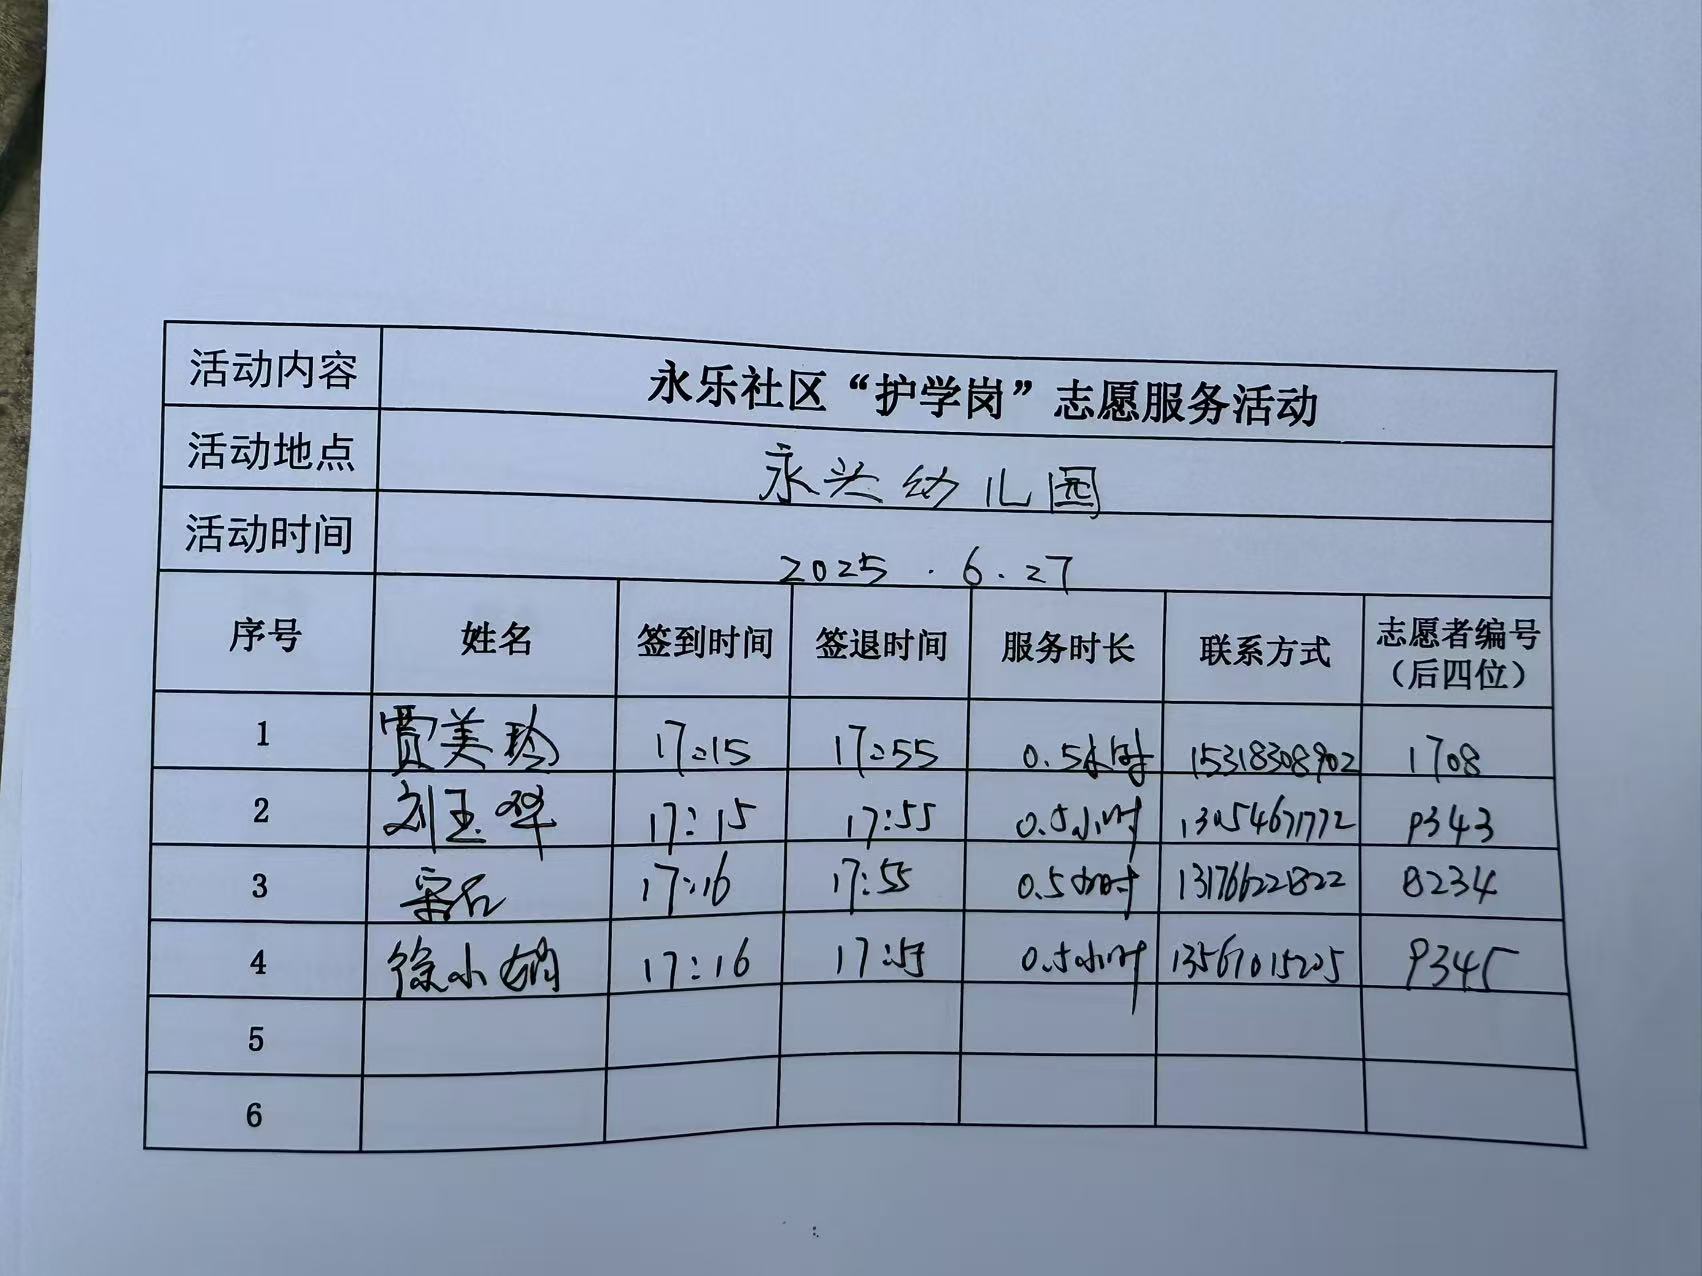 活动内容 永乐社区“护学岗”志愿服务活动
活动地点 永兴幼儿园
活动时间 2025.6.27
序号 姓名 签到时间 签退时间 服务时长 联系方式 志愿者编号（后四位）
1 贾美玲 17:15 17:55 0.5小时 15318308902 1708
2 刘玉华 17:15 17:55 0.5小时 13054671772 P343
3 17:16 17:55 0.5小时 13176622822 8234
4 徐小娟 17:16 17:55 0.5小时 13561015205 P345
5
6